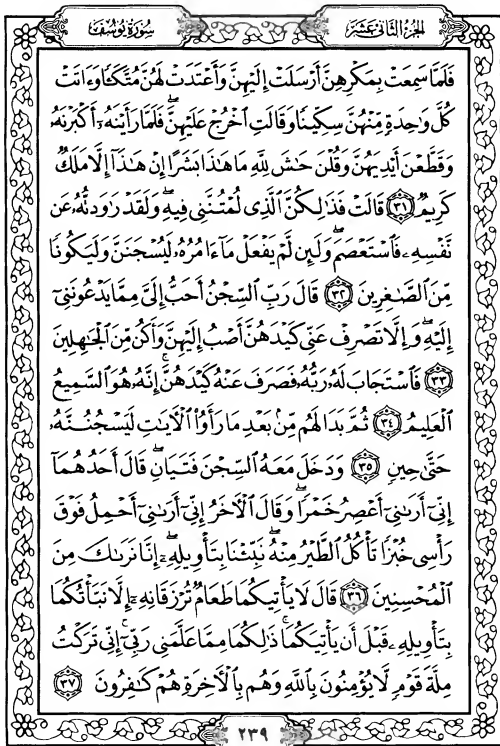 الجزء الثاني عشر
سورة يوسف
فَلَمَّا سَمِعَتْ بِمَكْرِهِنَّ أَرْسَلَتْ إِلَيْهِنَّ وَأَعْتَدَتْ لَهُنَّ مُتَّكَـًٔا وَءَاتَتْ
كُلَّ وَٰحِدَةٍ مِّنْهُنَّ سِكِّينًا وَقَالَتِ ٱخْرُجْ عَلَيْهِنَّ ۖ فَلَمَّا رَأَيْنَهُۥٓ أَكْبَرْنَهُۥ
وَقَطَّعْنَ أَيْدِيَهُنَّ وَقُلْنَ حَٰشَ لِلَّهِ مَا هَٰذَا بَشَرًا إِنْ هَٰذَآ إِلَّا مَلَكٌ
كَرِيمٌ ٣١ قَالَتْ فَذَٰلِكُنَّ ٱلَّذِى لُمْتُنَّنِى فِيهِ ۖ وَلَقَدْ رَٰوَدتُّهُۥ عَن
نَّفْسِهِۦ فَٱسْتَعْصَمَ ۖ وَلَئِن لَّمْ يَفْعَلْ مَآ ءَامُرُهُۥ لَيُسْجَنَنَّ وَلَيَكُونًا
مِّنَ ٱلصَّٰغِرِينَ ٣٢ قَالَ رَبِّ ٱلسِّجْنُ أَحَبُّ إِلَىَّ مِمَّا يَدْعُونَنِىٓ
إِلَيْهِ ۖ وَإِلَّا تَصْرِفْ عَنِّى كَيْدَهُنَّ أَصْبُ إِلَيْهِنَّ وَأَكُن مِّنَ ٱلْجَٰهِلِينَ
٣٣ فَٱسْتَجَابَ لَهُۥ رَبُّهُۥ فَصَرَفَ عَنْهُ كَيْدَهُنَّ ۚ إِنَّهُۥ هُوَ ٱلسَّمِيعُ
ٱلْعَلِيمُ ٣٤ ثُمَّ بَدَا لَهُم مِّنۢ بَعْدِ مَا رَأَوُا۟ ٱلْءَايَٰتِ لَيَسْجُنُنَّهُۥ
حَتَّىٰ حِينٍ ٣٥ وَدَخَلَ مَعَهُ ٱلسِّجْنَ فَتَيَانِ ۖ قَالَ أَحَدُهُمَآ
إِنِّىٓ أَرَىٰنِىٓ أَعْصِرُ خَمْرًا ۖ وَقَالَ ٱلْءَاخَرُ إِنِّىٓ أَرَىٰنِىٓ أَحْمِلُ فَوْقَ
رَأْسِى خُبْزًا تَأْكُلُ ٱلطَّيْرُ مِنْهُ ۖ نَبِّئْنَا بِتَأْوِيلِهِۦٓ ۖ إِنَّا نَرَىٰكَ مِنَ
ٱلْمُحْسِنِينَ ٣٦ قَالَ لَا يَأْتِيكُمَا طَعَامٌ تُرْزَقَانِهِۦٓ إِلَّا نَبَّأْتُكُمَا
بِتَأْوِيلِهِۦ قَبْلَ أَن يَأْتِيَكُمَا ۚ ذَٰلِكُمَا مِمَّا عَلَّمَنِى رَبِّىٓ ۚ إِنِّى تَرَكْتُ
مِلَّةَ قَوْمٍ لَّا يُؤْمِنُونَ بِٱللَّهِ وَهُم بِٱلْءَاخِرَةِ هُمْ كَٰفِرُونَ ٣٧
٢٣٩